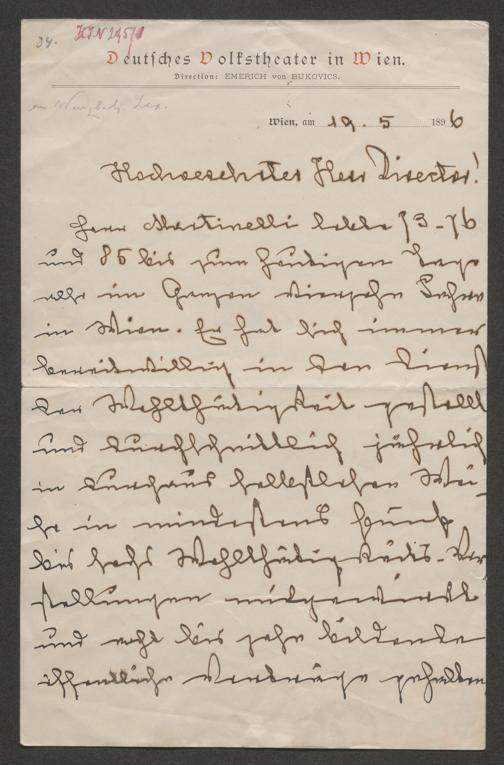 34.
Deutsches Volkstheater in Wien.
Direction: EMERICH von BUKOVICS.
Wien, am 19. 5 1896
Hochverehrter Herr Director!
Herr Martinelli lebte 73-76
und 85 bis zum heutigen Tage
also im Ganzen vierzehn Jahre
in Wien. Er hat sich immer
bereitwillig in den Dienst
der Wohlthätigkeit gestellt
und durchschnittlich jährlich
in durchaus selbstloser Wei-
se in mindestens fünf
bis sechs Wohlthätigkeits-Vor
stellungen mitgewirkt
und acht bis zehn bildende
öffentliche Vorträge gehalten